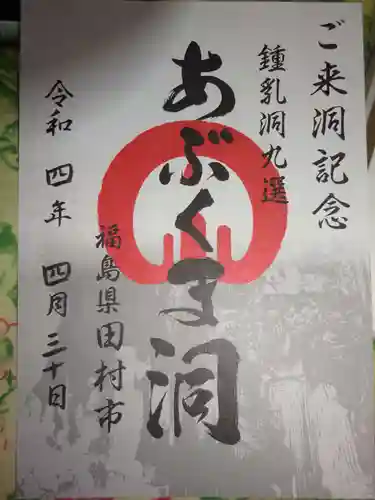 ご来洞記念
鍾乳洞九選
あぶくま洞
福島県田村市
令和四年四月三十日